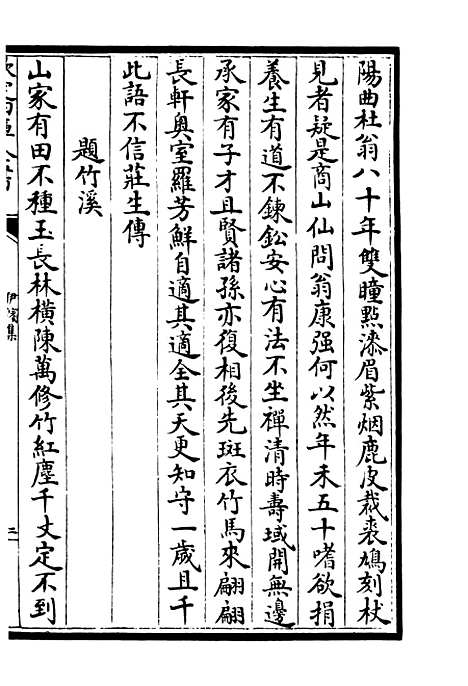 陽曲杜翁八十年雙瞳㸃漆眉紫烟鹿皮裁裘鳩刻杖
見者疑是商山仙問翁康强何以然年未五十嗜欲捐
養生有道不鍊鈆安心有法不坐禪清時壽域開無邊
承家有子才且賢諸孫亦復相後先斑衣竹馬來翩翩
長軒奥室羅芳鮮自適其適全其天更知守一歲且千
此語不信莊生傳
題竹溪
山家有田不種玉長林橫陳萬修竹紅塵千丈定不到
伊濱集